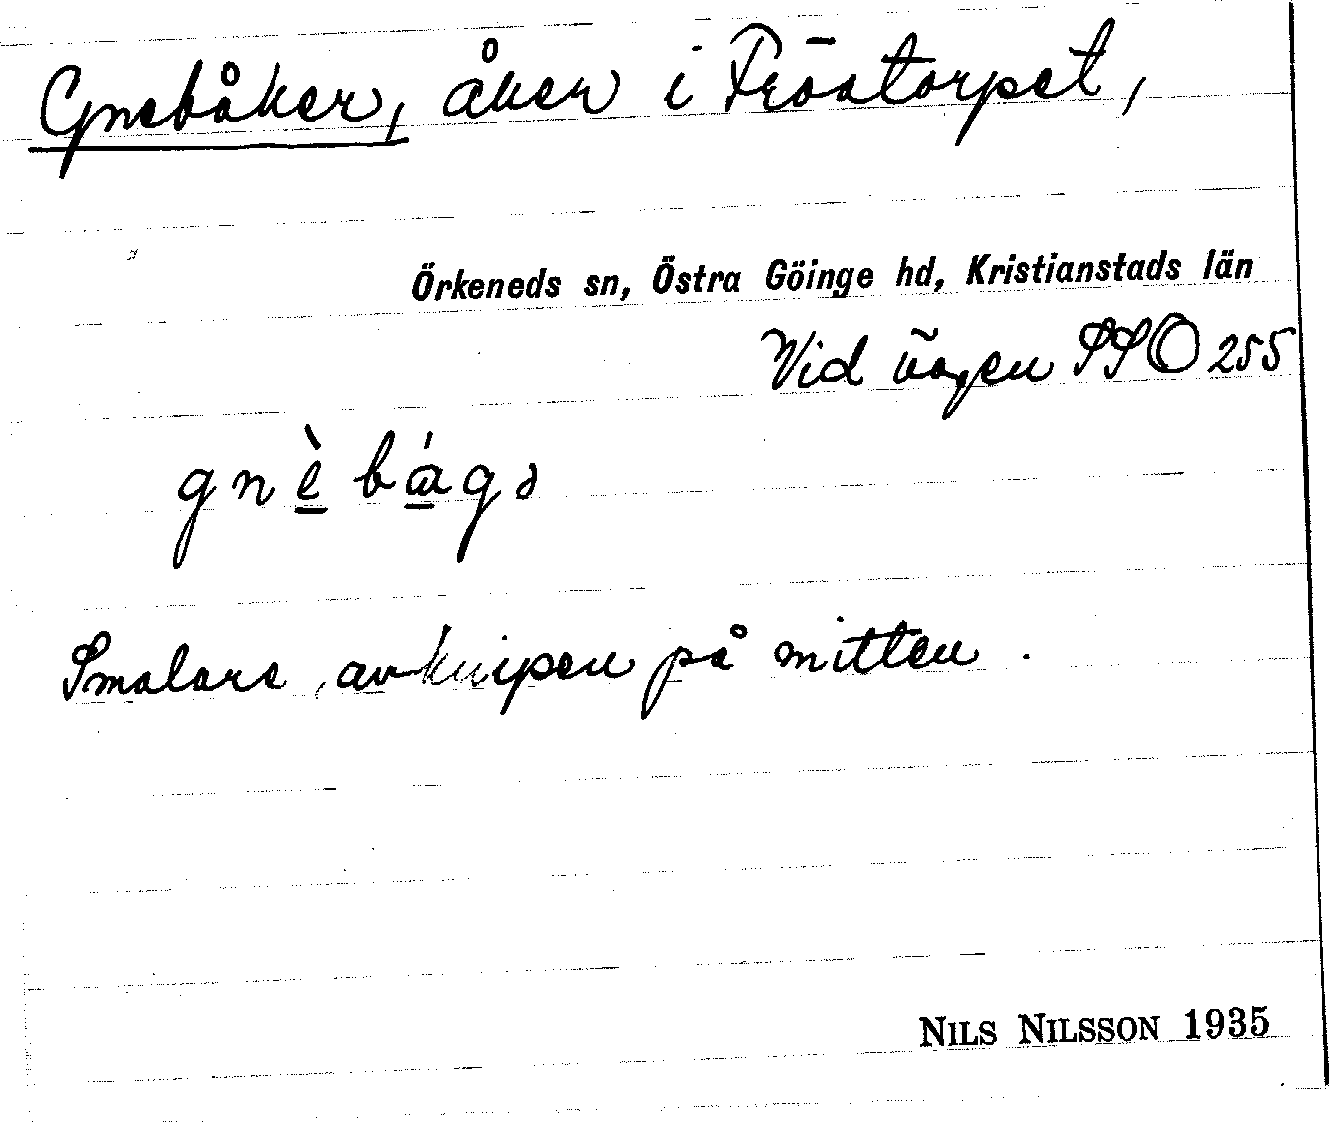 Gnebåker, åker i Fröatorpet,
Örkeneds sn, Östra Göinge hd, Kristianstads län
Vid vägen SSO 255
gnè bágə
Smalare, avknipen på mitten.
NILS NILSSON 1935